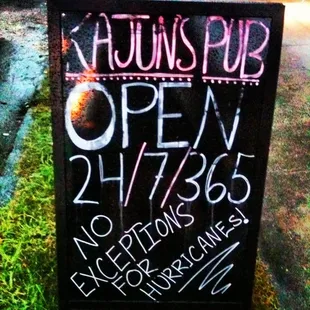 KAJUN'S PUB
OPEN
24/7/365
NO
EXCEPTIONS
FOR
HURRICANES!